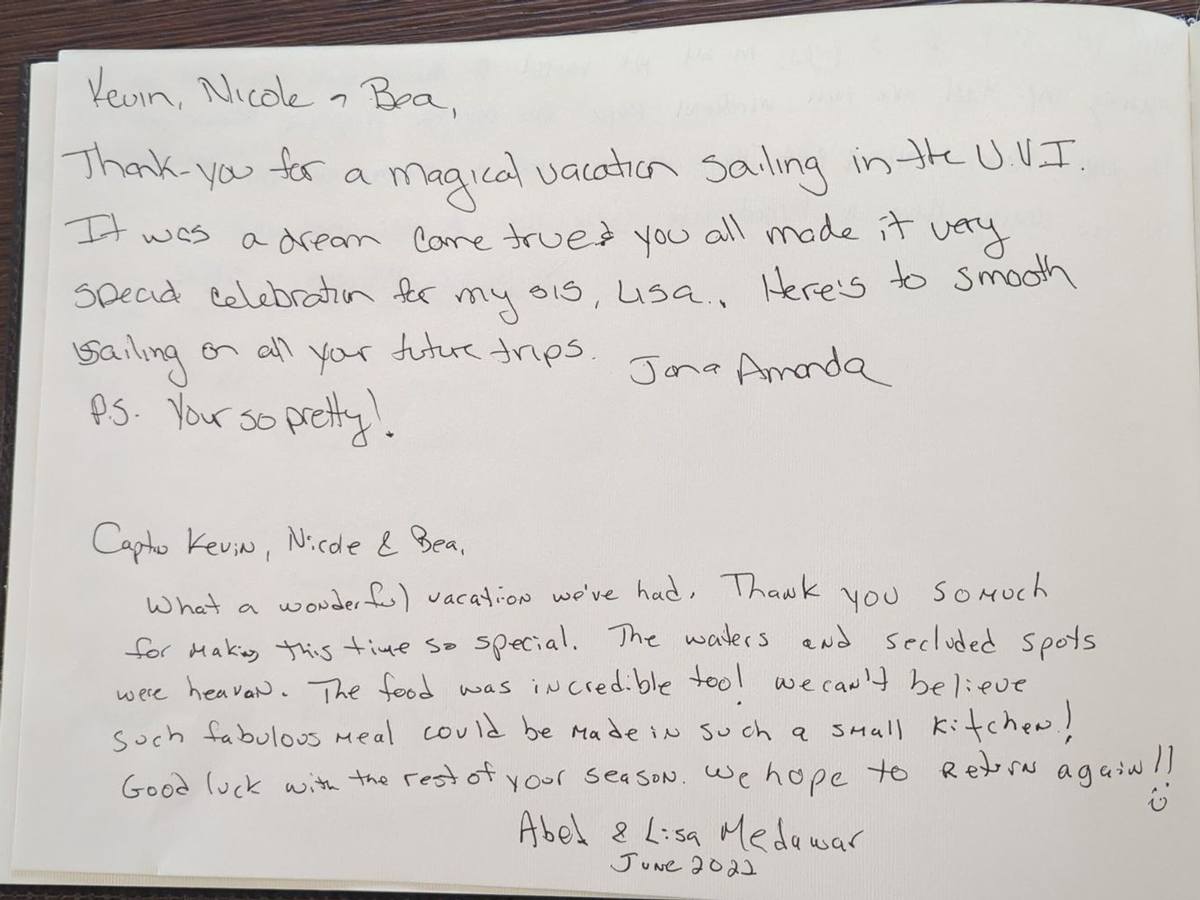 Kevin, Nicole & Bea,
Thank-you for a magical vacation sailing in the U.V.I.
It was a dream come true & you all made it very
special celebration for my sis, Lisa.. Here's to smooth
sailing on all your future trips. Amanda
P.S. Your so pretty!
Kevin, Nicole & Bea,
What a wonderful vacation we've had. Thank you so much
for making this time so special. The waters and secluded spots
were heaven. The food was incredible too! we can't believe
such fabulous meal could be made in such a small kitchen!
Good luck with the rest of your season. We hope to return again!!
Abel & Lisa Medawar
June 2022